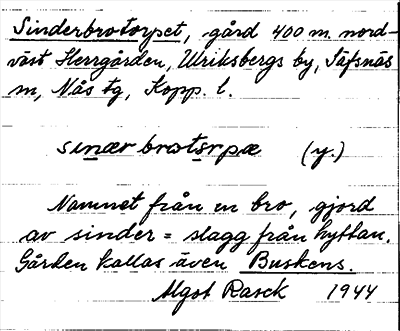 Sinderbrotorpet, gård 400 m nord-
väst Herrgården, Ulriksbergs by, Säfsnäs
sn, Nås tg, Kopp. l.
sinær brotɔrpæ (y.)
Namnet från en bro, gjord
av sinder = slagg från hyttan.
Gården kallas även Buskens.
Algot Rasck 1944